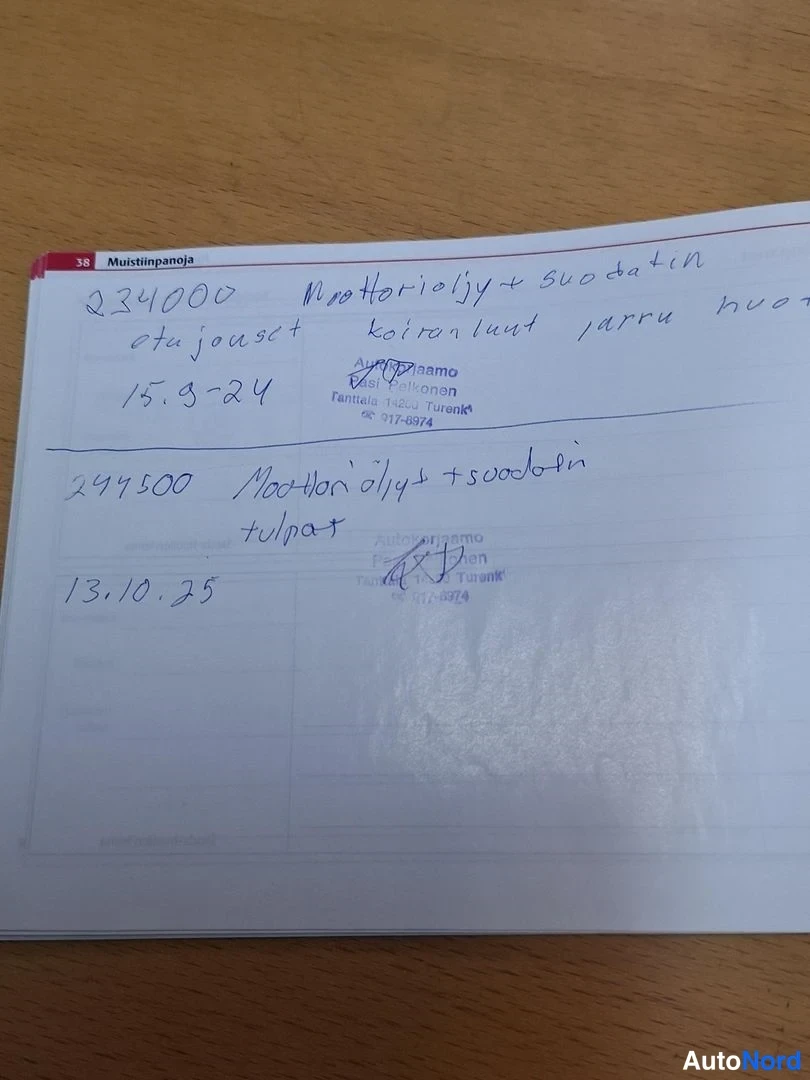 38 Muistiinpanoja
234000 Moottoriöljy + suodatin
etujouset koiranluut jarru huo
15.9-24
Autokorjaamo
Pasi Pelkonen
Tanttala 14200 Turenki
☎ 917-6974
244500 Moottori öljyt + suodatin
tulpat
13.10.25
Autokorjaamo
Turenki
917-6974
AutoNord